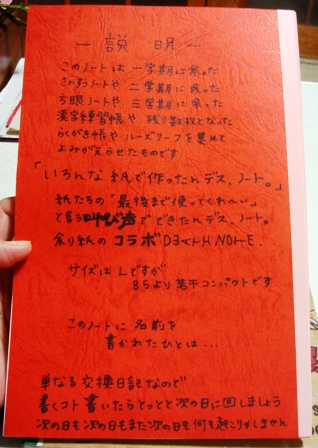 ― 説 明 ―
このノートは 一学期に余った
さんすうノートや 二学期に余った
5mm方眼ノートや 三学期に余った
漢字練習帳や 残り数枚となった
らくがき帳や ルーズリーフを集めて
よみがえらせたものです
「いろんな紙で作ったんデス、ノート。」
紙たちの“最後まで使ってくれ〜い”
と言う叫び声でできたんデス、ノート。
余り紙のコラボDEATH NOTE.
サイズは Lですが
B5より若干コンパクトです
このノートに 名前を
書かれたひとは...
単なる交換日記なので
書くコト 書いたらとっとと次の日に回しましょう
次の日も次の日もまた次の日も何も起こりゃしません